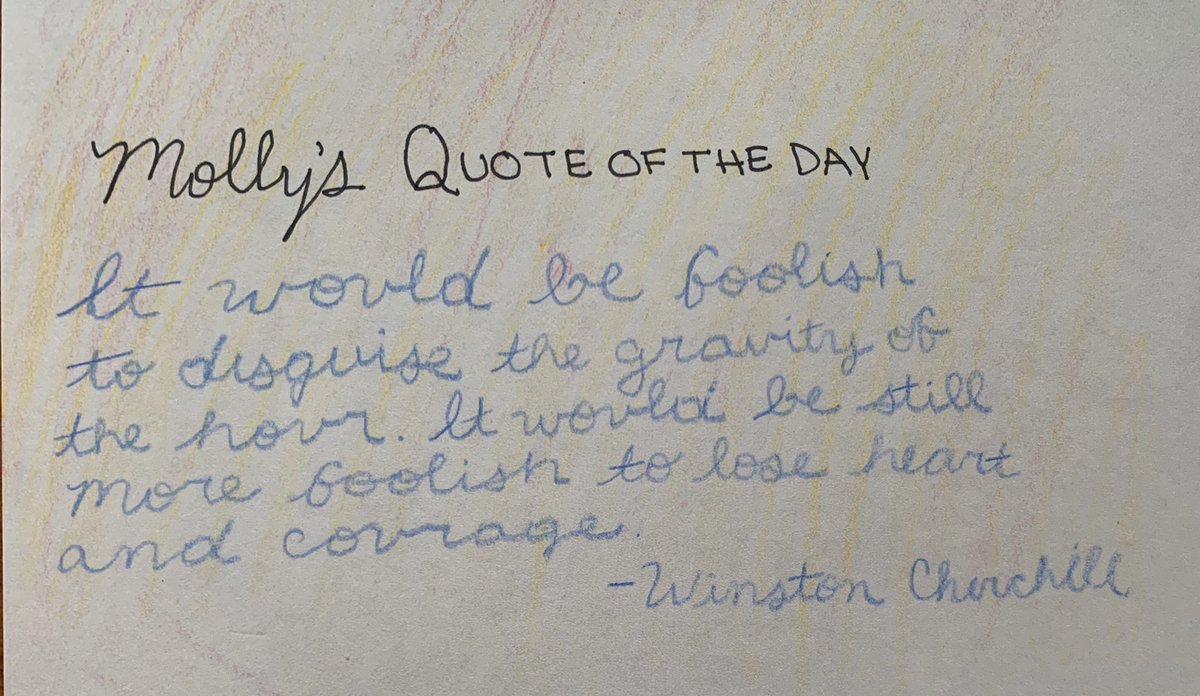 Molly's QUOTE OF THE DAY
It would be foolish
to disguise the gravity of
the hour. It would be still
more foolish to lose heart
and courage.
-Winston Churchill